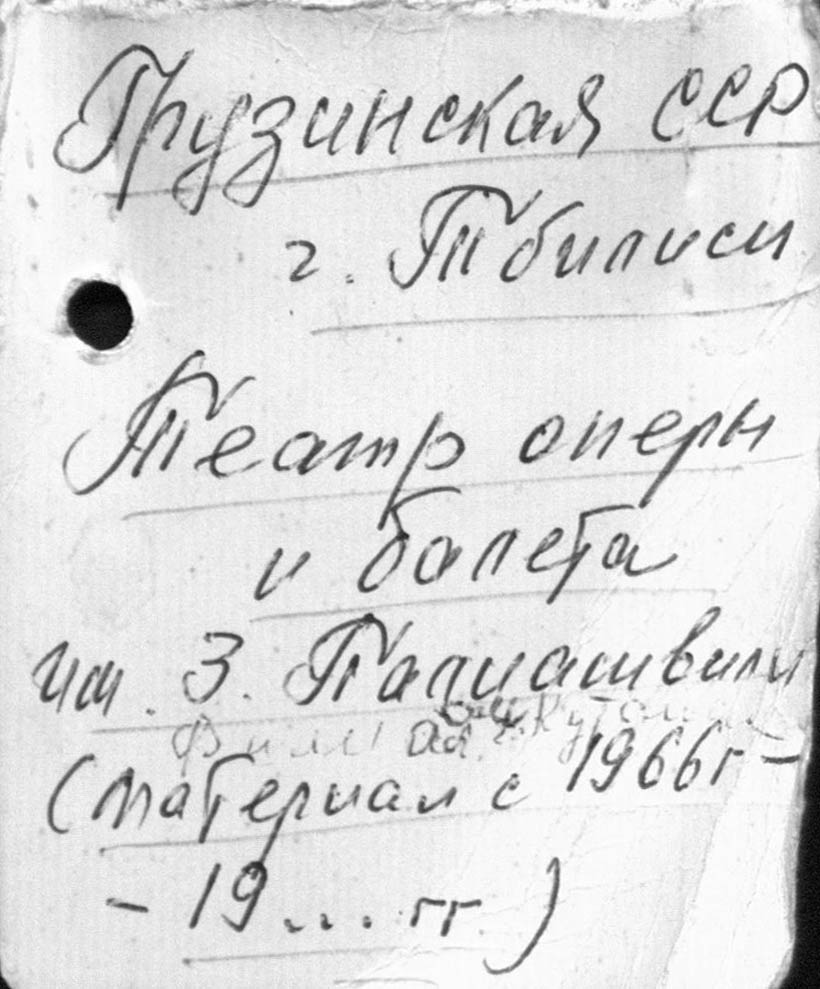 Грузинская ССР
г. Тбилиси
Театр оперы
и балета
им. З. Палиашвили
Филиал
(материал с 1966г -
- 19... гг)